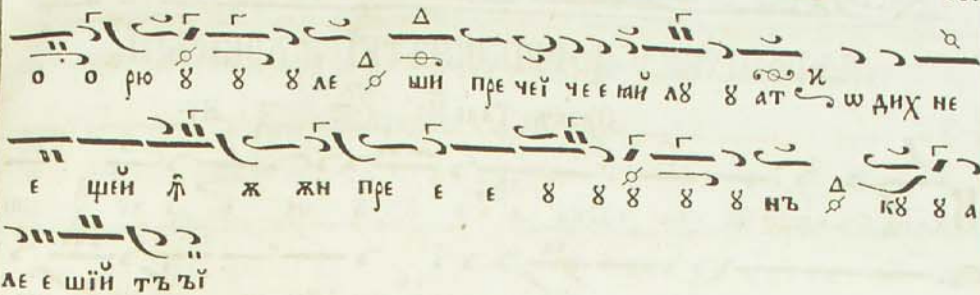 о о рю ꙋ ꙋ ꙋ ле Δ ши пре чеї че е май лꙋ ꙋ ат ѡ дих не
е щей ѫ жн пре е е ꙋ ꙋ ꙋ ꙋ ꙋ нъ Δ кꙋ ꙋ а
ле е шїй тъ ъї